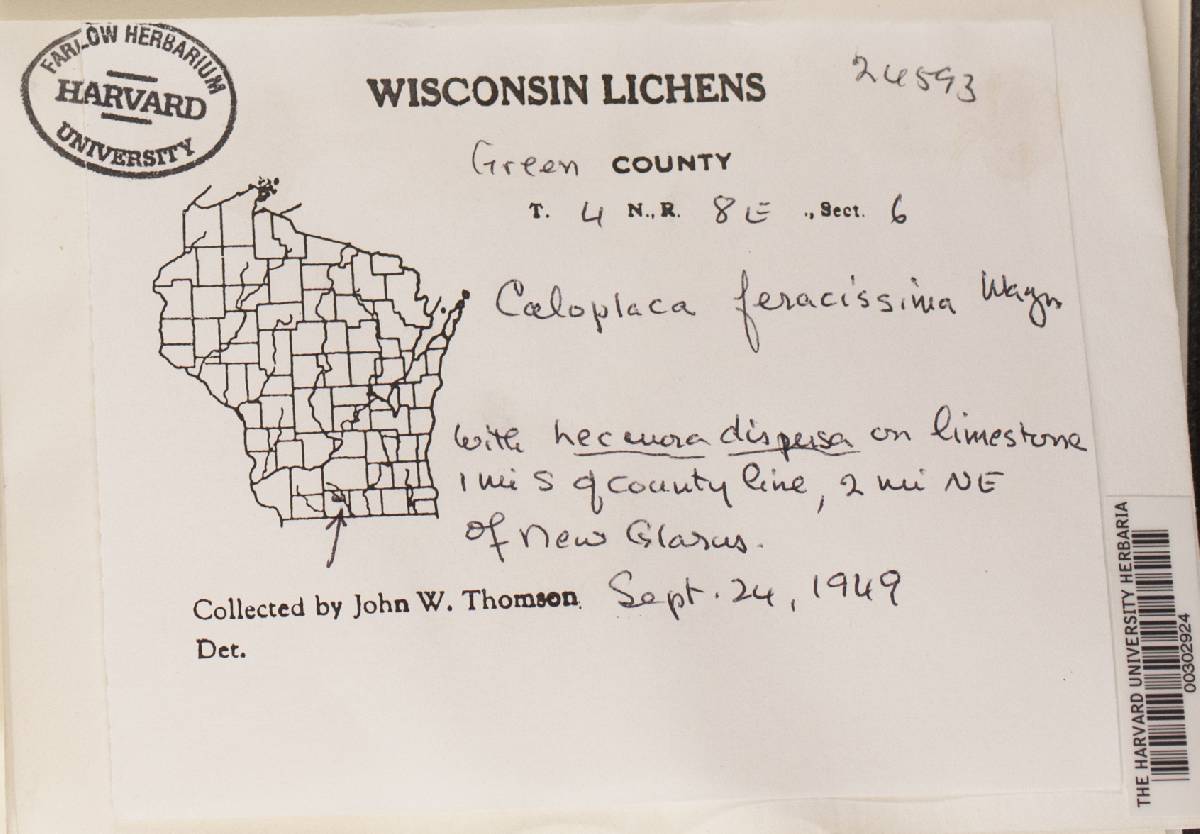 FARLOW HERBARIUM
HARVARD
UNIVERSITY
WISCONSIN LICHENS
24593
Green COUNTY
T. 4 N., R. 8E ., Sect. 6
Caloplaca feracissima Magn
with Lecanora dispersa on limestone
1 mi S of county line, 2 mi NE
of New Glarus.
Collected by John W. Thomson. Sept. 24, 1949
Det.
THE HARVARD UNIVERSITY HERBARIA
00302924